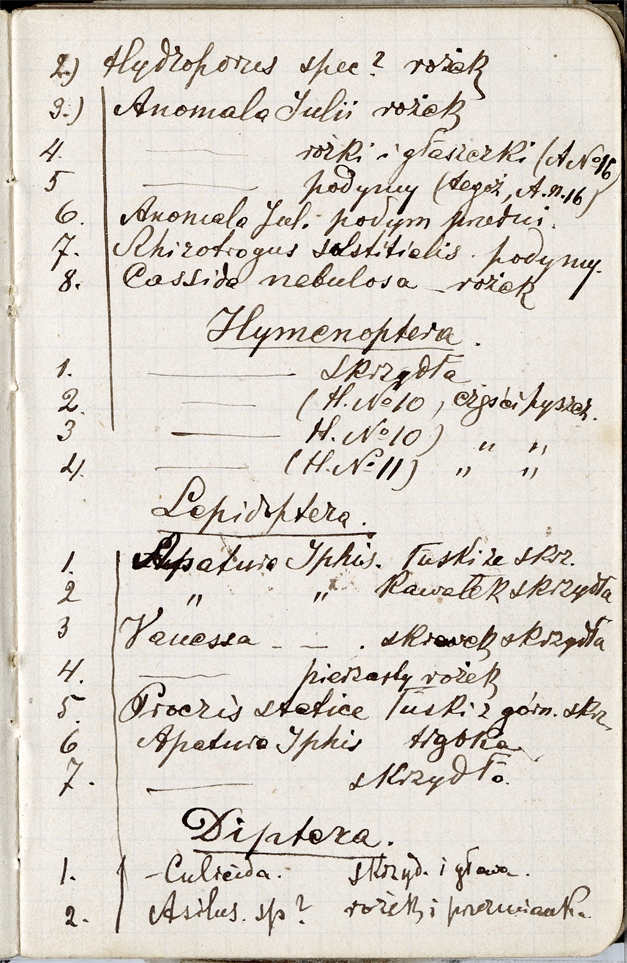 2.) Hydroporus spec? rożek
3.) Anomala Julii rożek
4. — rożki i głaszczki (A No 16)
5 — podymy (tegoż, A.n.16)
6. Anomala Jul. podym przedni.
7. Rhizotrogus solstitialis. podymy.
8. Cassida nebulosa rożek
Hymenoptera.
1. — skrzydła
2. — (H. No 10, części pyszcz.
3 — H. No 10) " "
4. — (H. No 11) " "
Lepidoptera.
1. Apatura Iphis. łuski ze skrz.
2 " " Kawałek skrzydła
3 Vanessa — . skrawek skrzydła
4. — pierzasty rożek
5. Procris statice łuski z górn. skrz.
6 Apatura Iphis
7. — skrzydło.
Diptera.
1. - Culicida. skrzyd. i głowa.
2. Asilus. sp? rożek i przezmianka.